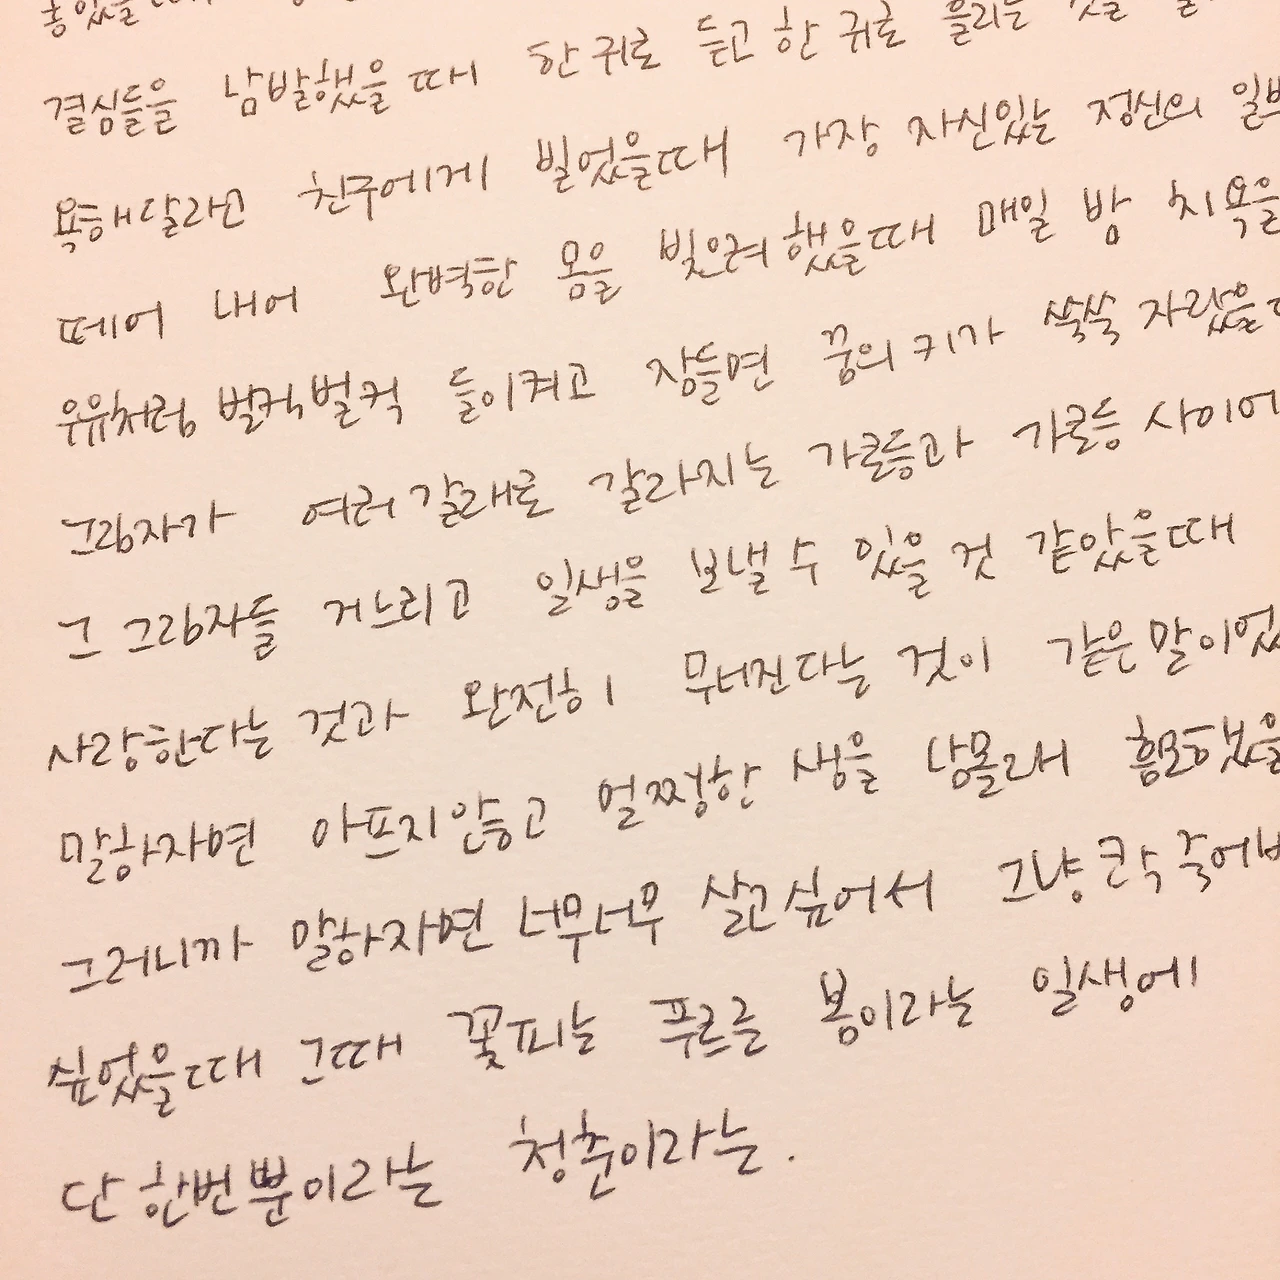 결심들을 남발했을 때 한 귀로 듣고 한 귀로 흘리는
욕해달라고 친구에게 빌었을때 가장 자신있는 정신의 일부
떼어 내어 완벽한 몸을 빚으려 했을때 매일 밤 치욕을
우유처럼 벌컥벌컥 들이켜고 잠들면 꿈의 키가 쑥쑥 자랐을
그림자가 여러 갈래로 갈라지는 가로등과 가로등 사이에
그 그림자들 거느리고 일생을 보낼 수 있을 것 같았을때
사랑한다는 것과 완전히 무너진다는 것이 같은 말이었
말하자면 아프지 않고 멀쩡한 생을 남몰래 흠모했을
그러니까 말하자면 너무너무 살고 싶어서 그냥 콱 죽어버
싶었을때 그때 꽃피는 푸르른 봄이라는 일생에
단 한번뿐이라는 청춘이라는.